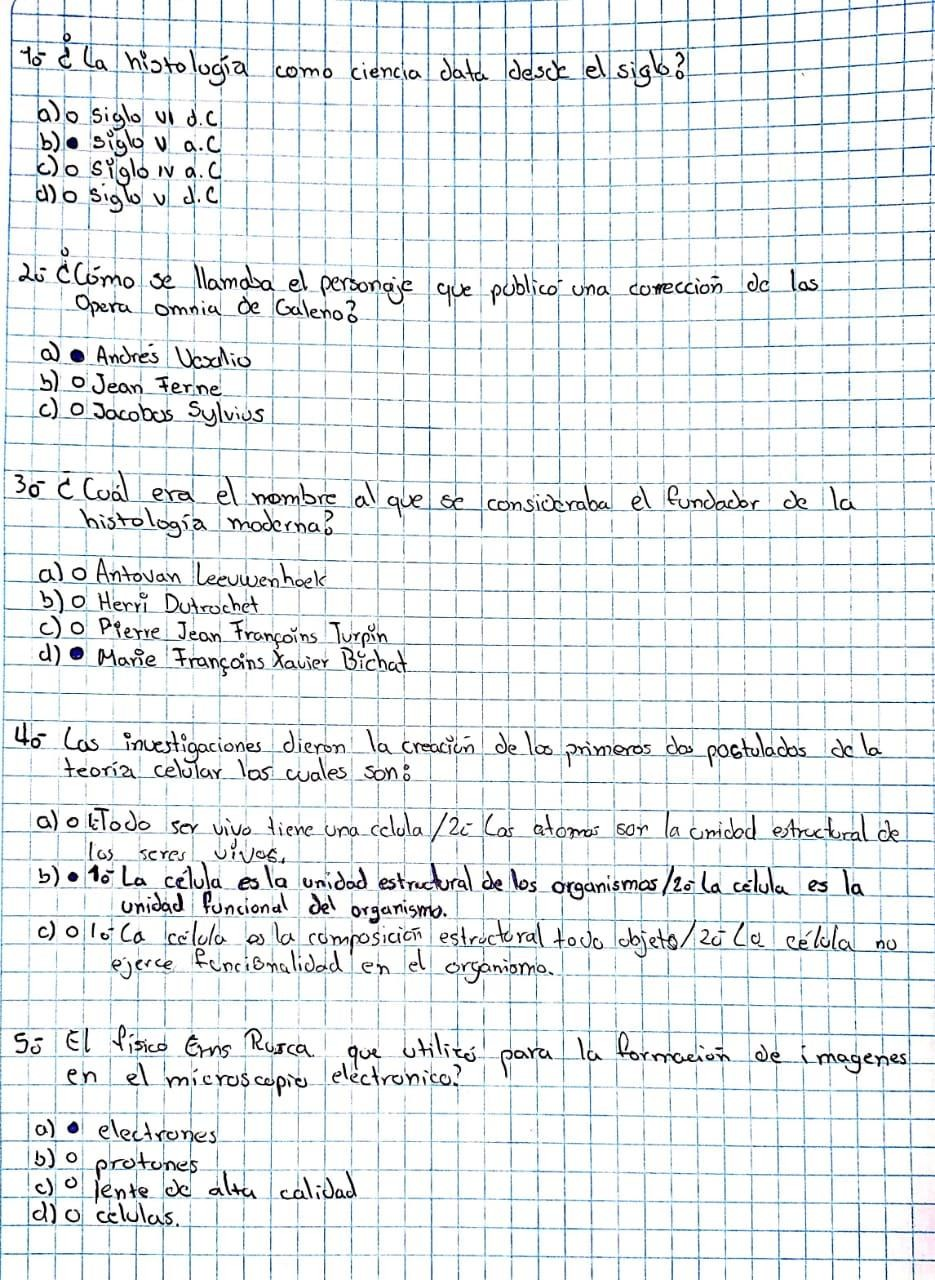 1o- ¿La histología como ciencia data desde el siglo?
a) o siglo VI d.C
b) • siglo V a.C
c) o siglo IV a.C
d) o siglo V d.C
2o- ¿Cómo se llamaba el personaje que publicó una corrección de las
Opera omnia de Galeno?
a) • Andrés Vexalio
b) o Jean Ferne
c) o Jacobus Sylvius
3o- ¿Cuál era el nombre al que se consideraba el fundador de la
histología moderna?
a) o Antovan Leeuwenhoek
b) o Henri Dutrochet
c) o Pierre Jean Françoins Turpin
d) • Marie Françoins Xavier Bichat
4o- Las investigaciones dieron la creación de los primeros dos postulados de la
teoría celular los cuales son:
a) o 1-Todo ser vivo tiene una celula/2o- Los atomos son la unidad estructural de
los seres vivos.
b) • 1o- La célula es la unidad estructural de los organismos/2o- La célula es la
unidad funcional del organismo.
c) o 1o- La célula es la composición estructural todo objeto/2o- La célula no
ejerce funcionalidad en el organismo.
5o- El físico Erns Rusca que utilizó para la formación de imagenes
en el microscopio electronico?
a) • electrones
b) o protones
c) o lente de alta calidad
d) o celulas.